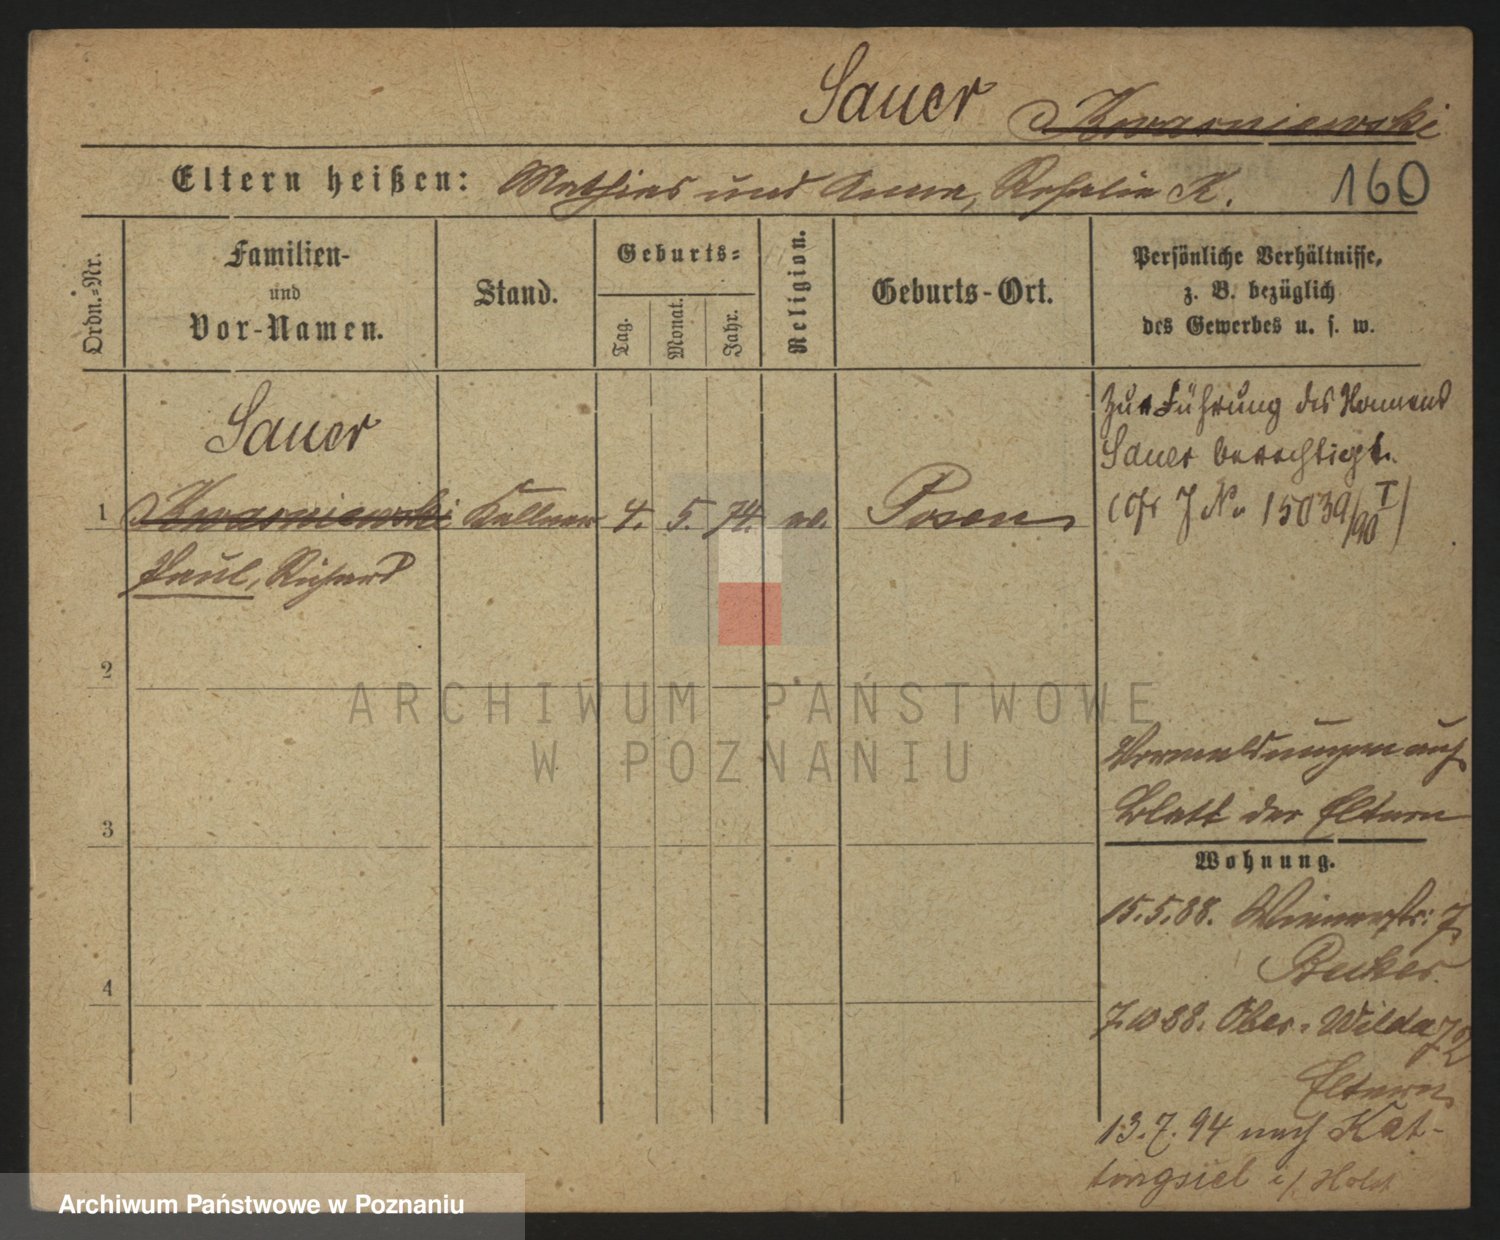 Sauer Kwasniewski
Eltern heißen: Mathias und Anna, Rosalie K. 160
Ordn.-Nr.
Familien-
und
Vor-Namen.
Stand.
Geburts-
Tag. Monat. Jahr.
Religion.
Geburts-Ort.
Persönliche Verhältnisse,
z. B. bezüglich
des Gewerbes u. s. w.
Sauer
1 Kwasniewski Kellner 4. 5. 74. Posen
Paul, Richard
Zur Führung des Namens
Sauer berechtigt.
(cfr J No 15039/90 I)
2
3
4
Vormeldungen auf
Blatt der Eltern
Wohnung.
15.5.88. Wienerstr: 7
Becker
7.10 88. Ober-Wilda 72
Eltern
13.7.94 nach Kat-
tingsiel i/ Holst
ARCHIWUM PAŃSTWOWE
W POZNANIU
Archiwum Państwowe w Poznaniu